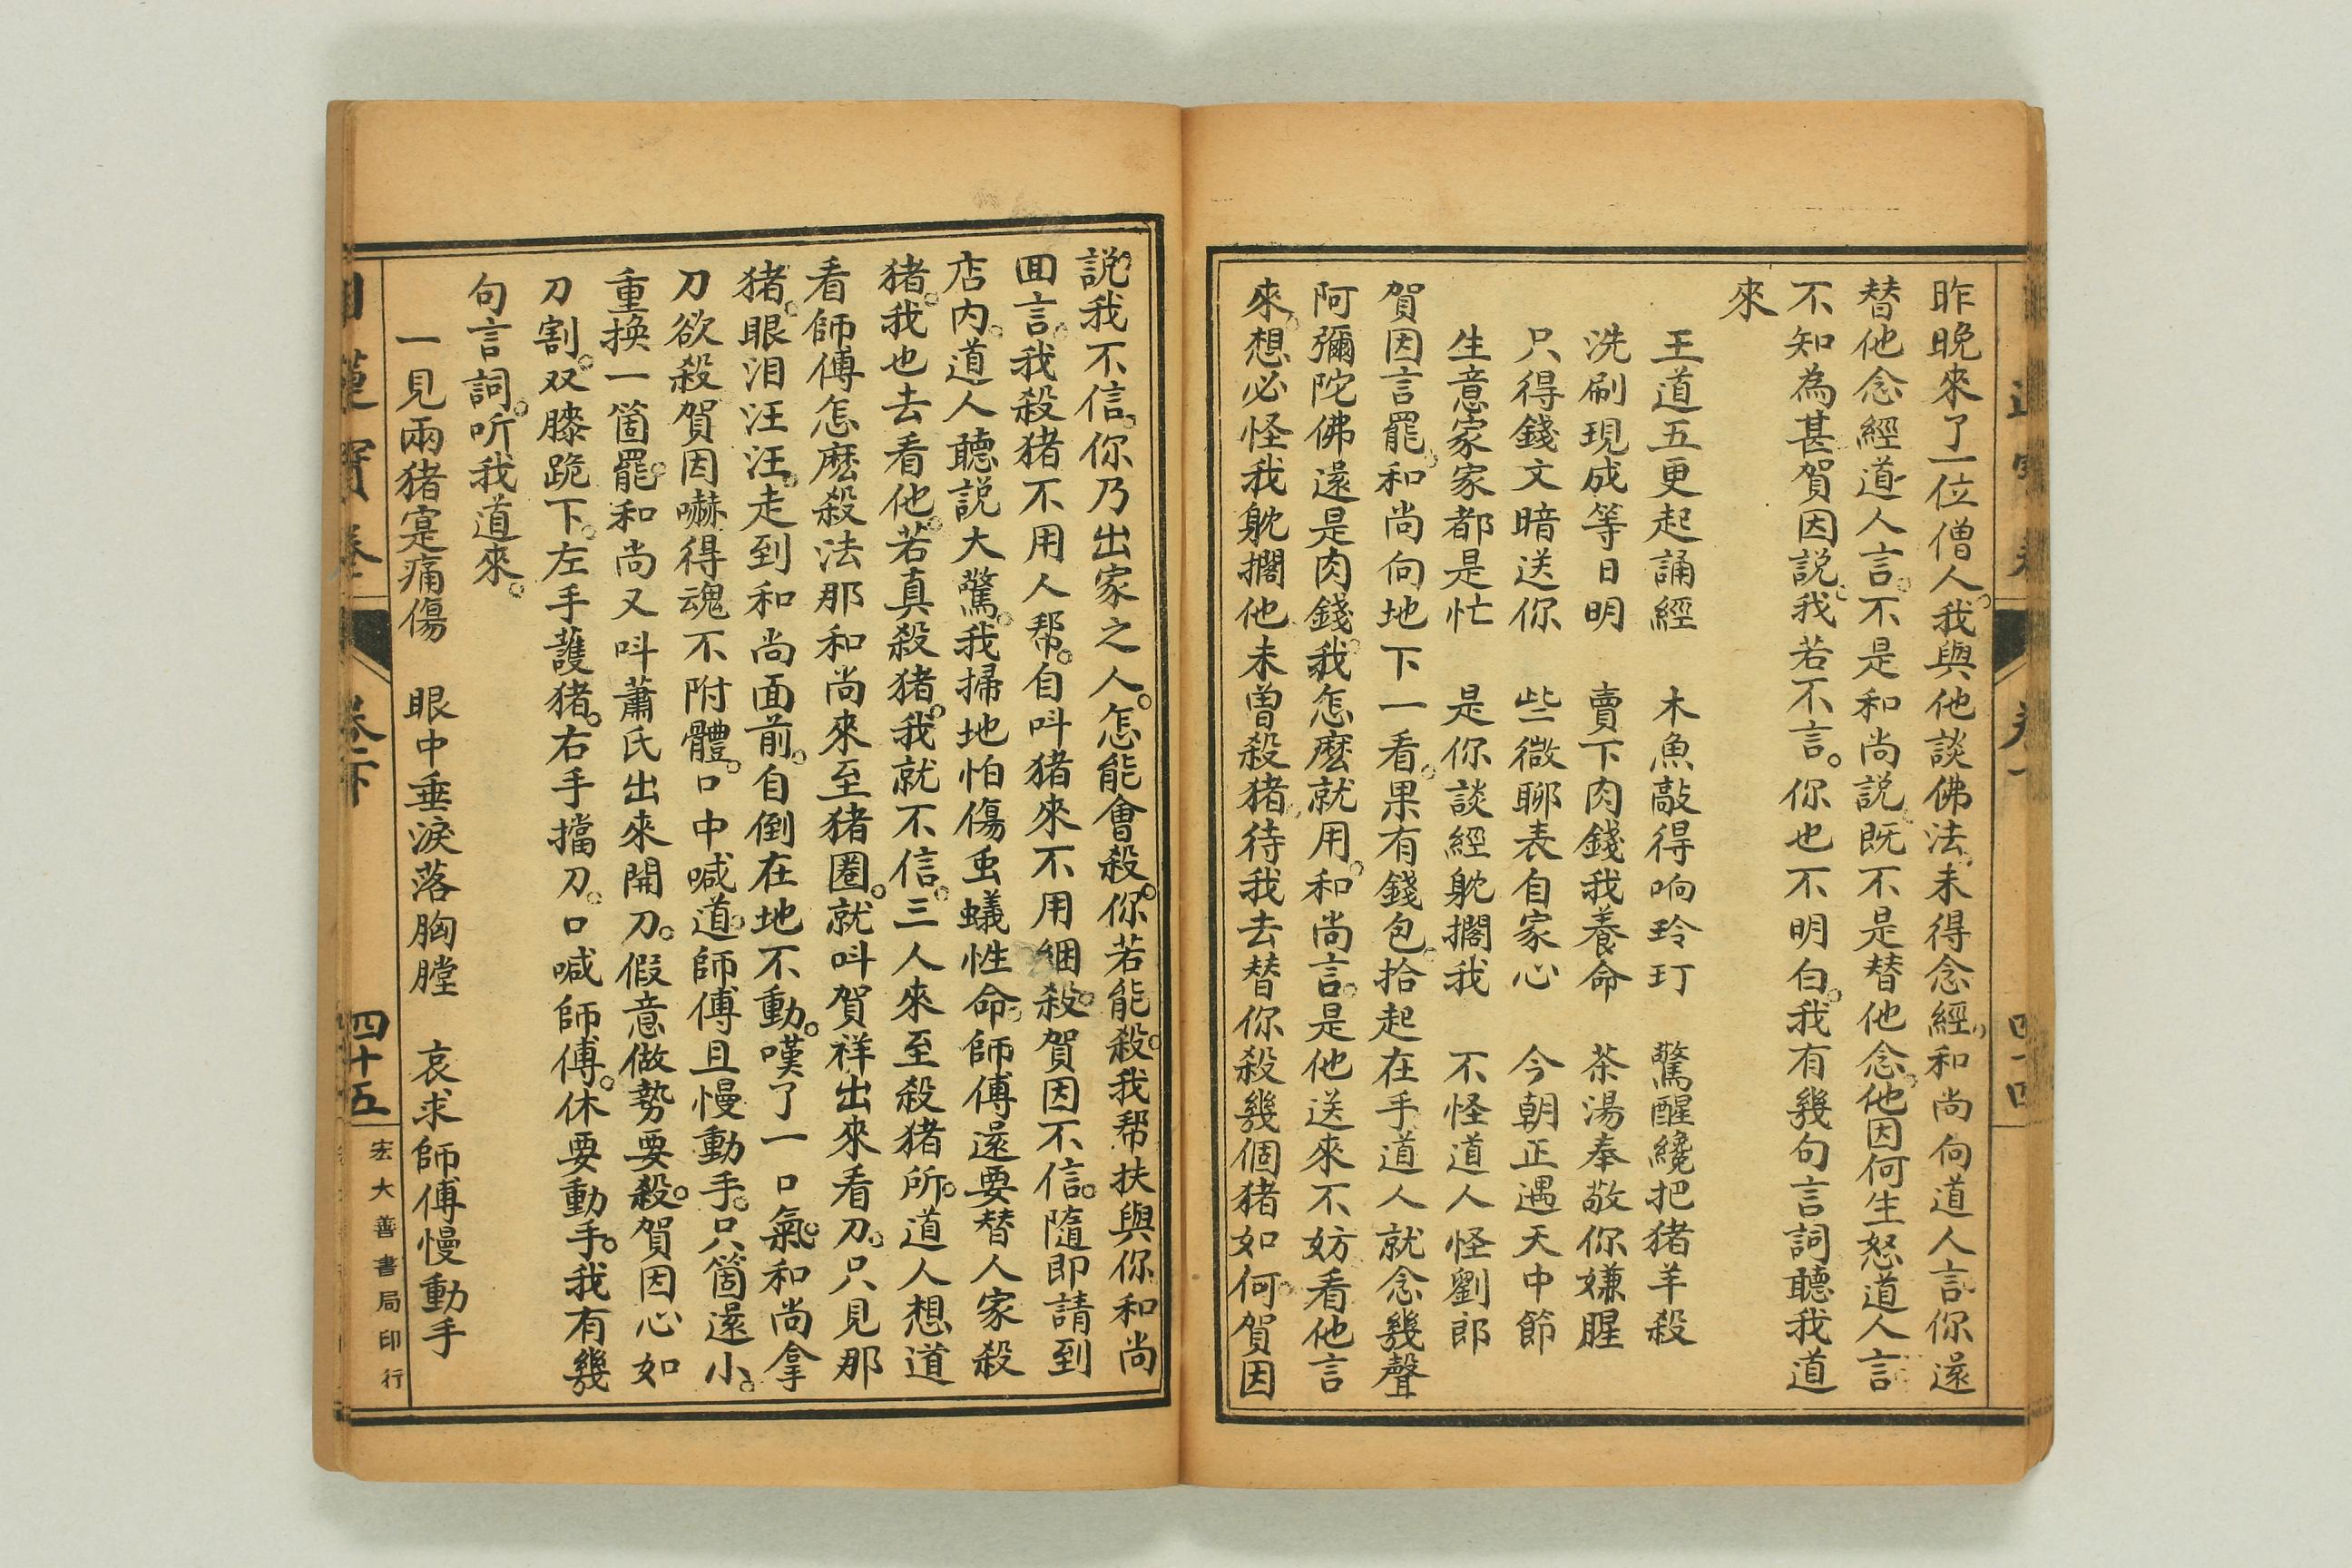 昨晚來了一位僧人。我與他談佛法。未得念經。和尚向道人言。你還
替他念經。道人言。不是和尚説。既不是替他念。他因何生怒。道人言
不知為甚。賀因説。我若不言。你也不明白。我有幾句言詞。聽我道
來
王道五更起誦經　木魚敲得响玲玎　驚醒纔把猪羊殺
洗刷現成等日明　賣下肉錢我養命　茶湯奉敬你嫌腥
只得錢文暗送你　些微聊表自家心　今朝正遇天中節
生意家家都是忙　是你談經躭擱我　不怪道人怪劉郎
賀因言罷。和尚向地下一看。果有錢包。拾起在手。道人就念幾聲
阿彌陀佛。還是肉錢。我怎麽就用。和尚言。是他送來。不妨看他言
來。想必怪我躭擱他未曾殺猪。待我去替你殺幾個猪如何。賀因
説。我不信。你乃出家之人。怎能會殺。你若能殺。我帮扶與你。和尚
囬言。我殺猪不用人帮。自呌猪來。不用綑。殺。賀因不信。隨即請到
店内。道人聽説大驚。我掃地怕傷虫蟻性命。師傅還要替人家殺
猪。我也去看他。若真殺猪。我就不信。三人來至殺猪所。道人想道
看師傅怎麽殺法。那和尚來至猪圈。就呌賀祥出來看刀。只見那
猪。眼泪汪汪。走到和尚面前。自倒在地不動。嘆了一口氣。和尚拿
刀欲殺。賀因嚇得魂不附體。口中喊道。師傅且慢動手。只箇還小。
重換一箇罷。和尚又呌蕭氏出來開刀。假意做勢要殺。賀因心如
刀割。双膝跪下。左手護猪。右手擋刀。口喊師傅。休要動手。我有幾
句言詞。听我道來。
一見兩猪寔痛傷　眼中垂淚落胸膛　哀求師傅慢動手
寶卷　卷下　四十五　宏大善書局印行